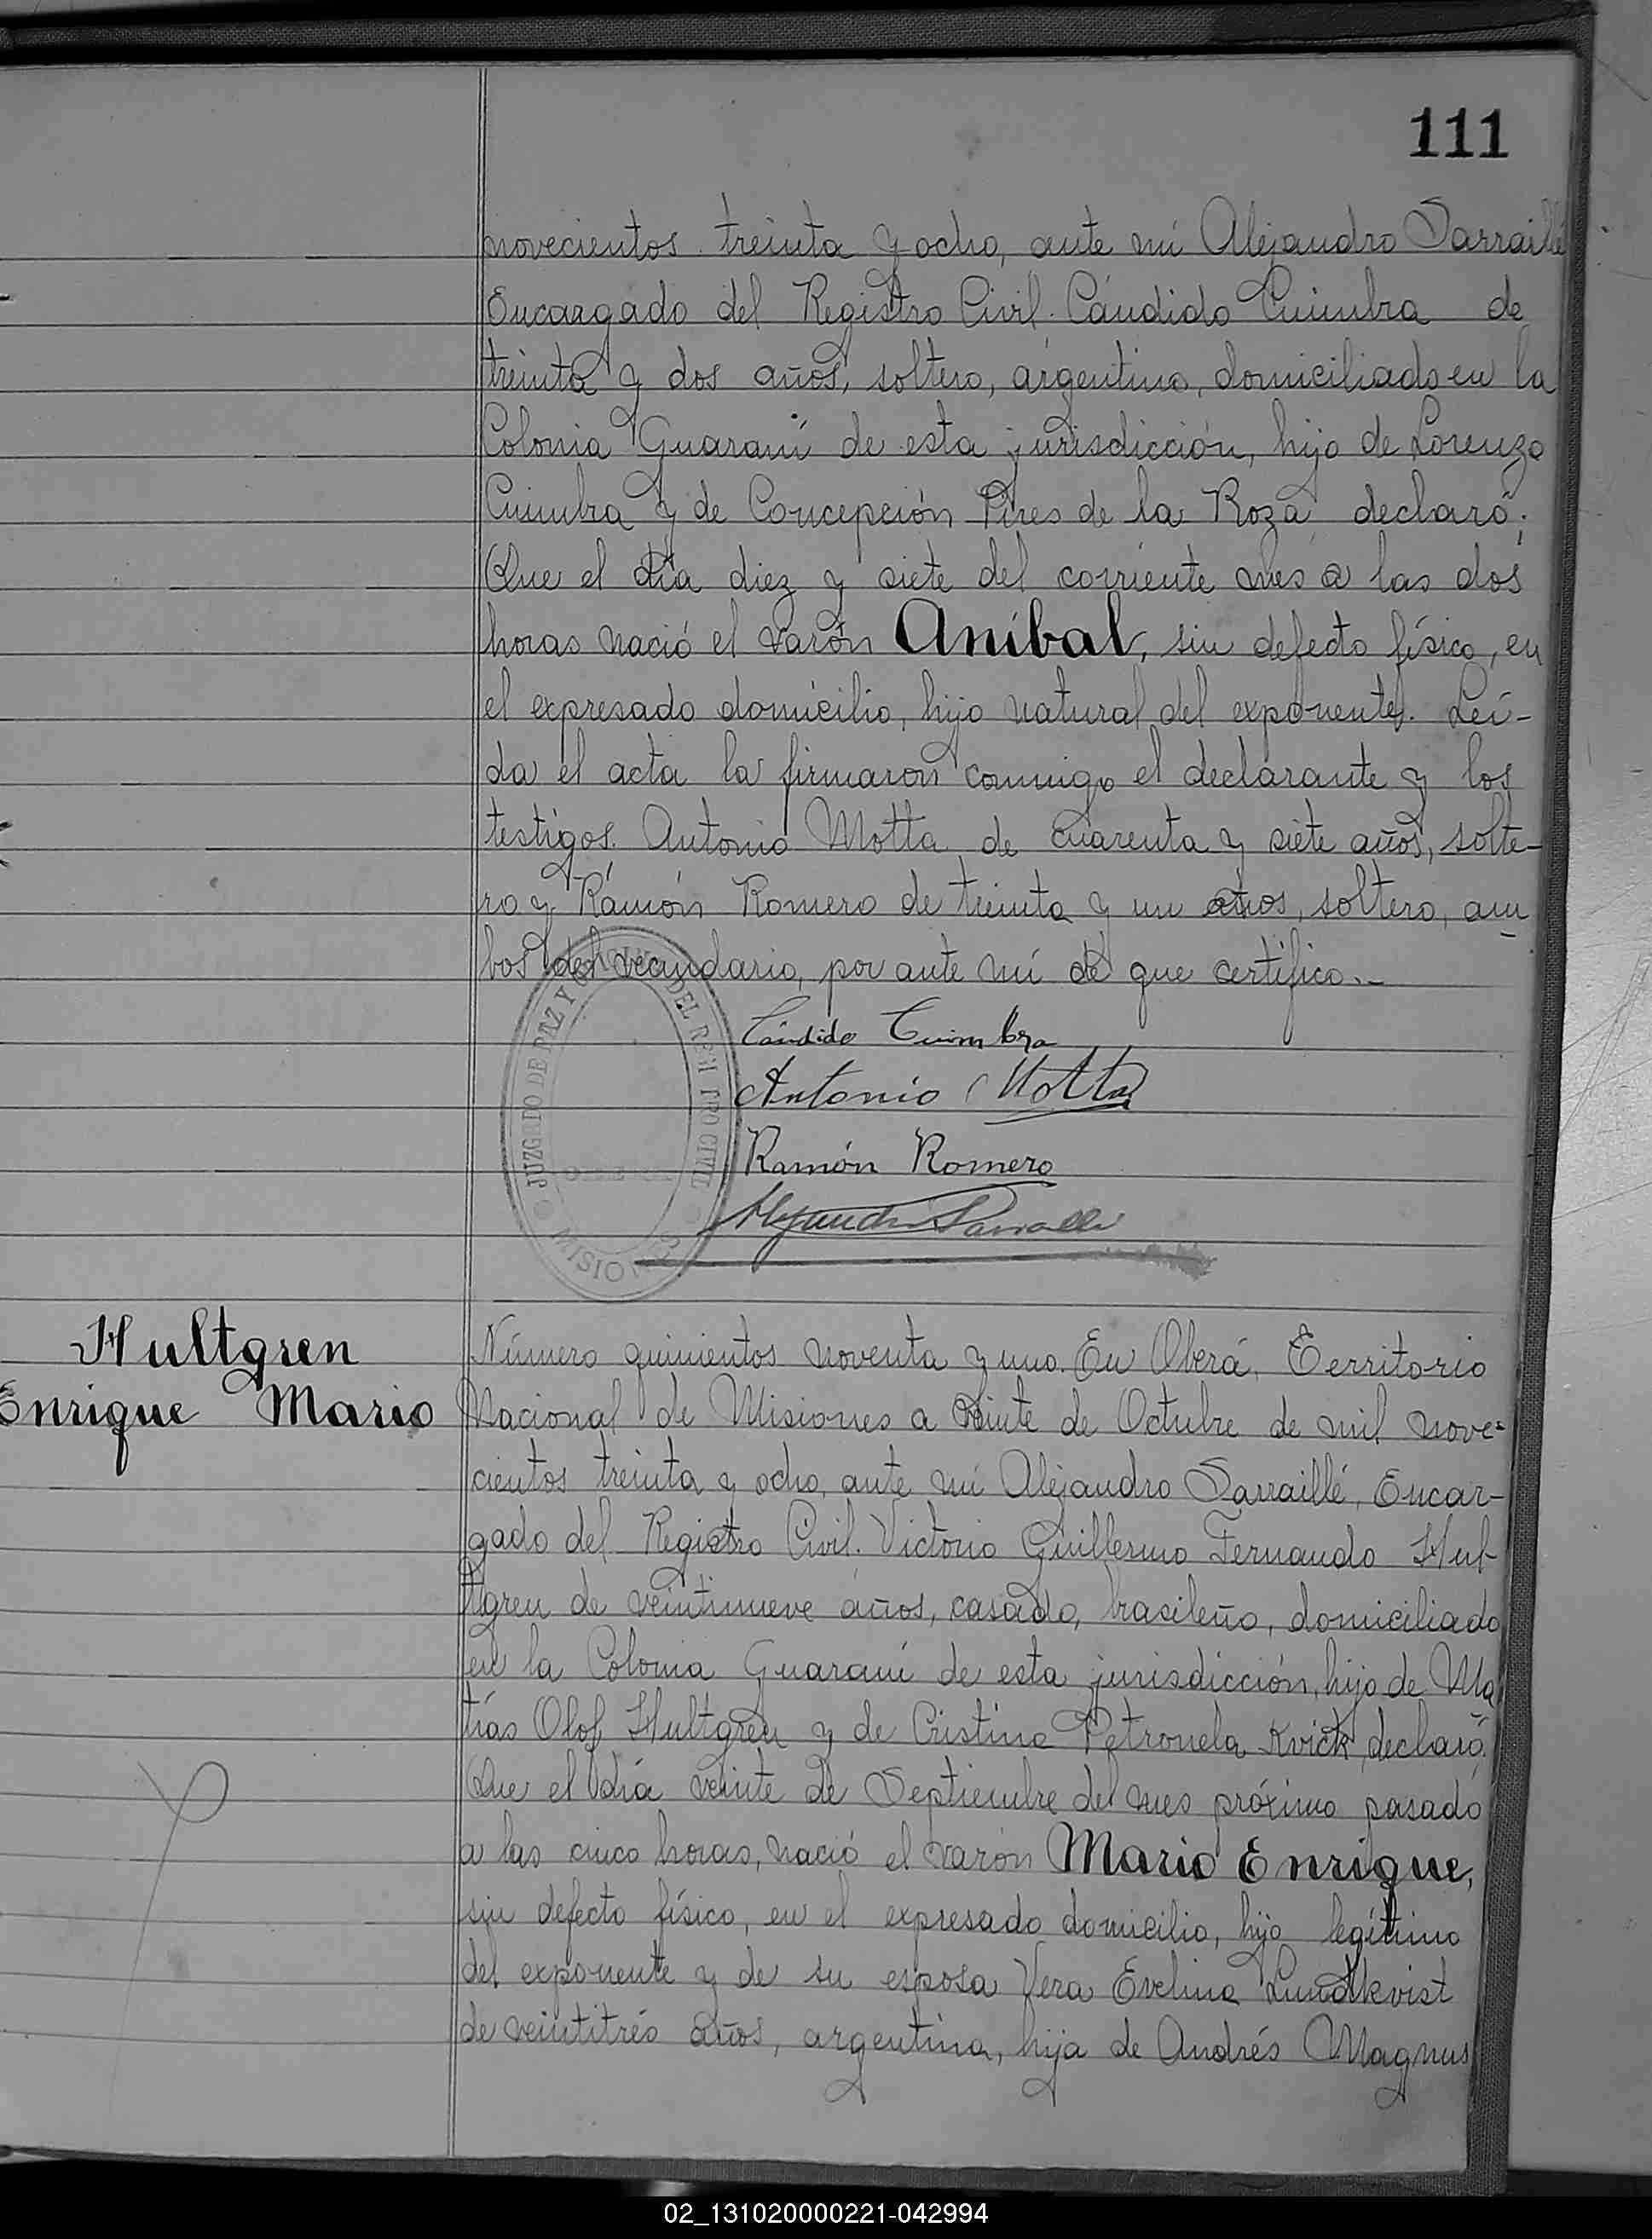 111
novecientos treinta y ocho, ante mí Alejandro Sarraillé
Encargado del Registro Civil. Cándido Cuimbra de
treinta y dos años, soltero, argentino, domiciliado en la
Colonia Guaraní de esta jurisdicción, hijo de Lorenzo
Cuimbra y de Concepción Pires de la Roza declaró:
Que el día diez y siete del corriente mes a las dos
horas nació el varón Aníbal, sin defecto físico, en
el expresado domicilio, hijo natural del exponente. Leí-
da el acta la firmaron conmigo el declarante y los
testigos. Antonio Motta de cuarenta y siete años, solte-
ro y Ramón Romero de treinta y un años, soltero, am
bos del vecindario, por ante mí de que certifico.-
Cándido Cuimbra
Antonio Motta
Ramón Romero
Alejandro Sarraillé
JUZGADO DE PAZ Y DEL REGISTRO CIVIL
MISIONES
Hultgren
Enrique Mario
Número quinientos noventa y uno. En Oberá, Territorio
Nacional de Misiones a veinte de Octubre de mil nove-
cientos treinta y ocho, ante mí Alejandro Sarraillé, Encar-
gado del Registro Civil. Victorio Guillermo Fernando Hul-
tgren de veintinueve años, casado, brasileño, domiciliado
en la Colonia Guaraní de esta jurisdicción, hijo de Ma
tías Olof Hultgren y de Cristina Petronela Kvick, declaró:
Que el día veinte de Septiembre del mes próximo pasado
a las cinco horas, nació el varón Mario Enrique,
sin defecto físico, en el expresado domicilio, hijo legítimo
del exponente y de su esposa Vera Evelina Lundkvist
de veintitrés años, argentina, hija de Andrés Magnus
02_131020000221-042994